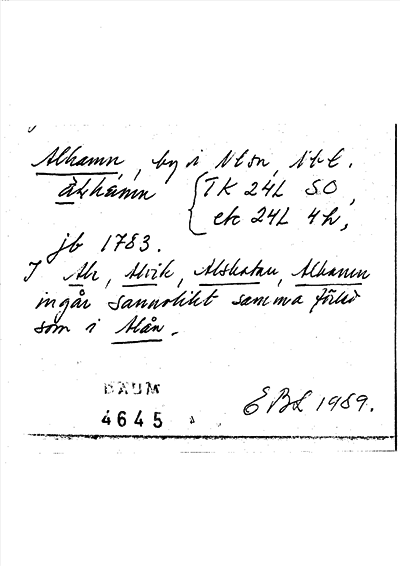 Alhamn, by i Nlsn, Nbt.
àLhamn { TK 24L SO,
ek 24L 4h,
jb 1783.
I Ale, Alvik, Alskatan, Alhamn
ingår sannolikt samma förled
som i Alån.
DAUM
4645
EBL 1989.